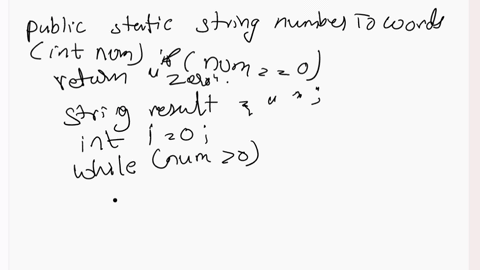 public static string numbers To words
(int num) if (num == 0)
return "zero".
string result = " ";
int i = 0;
while (num >0)